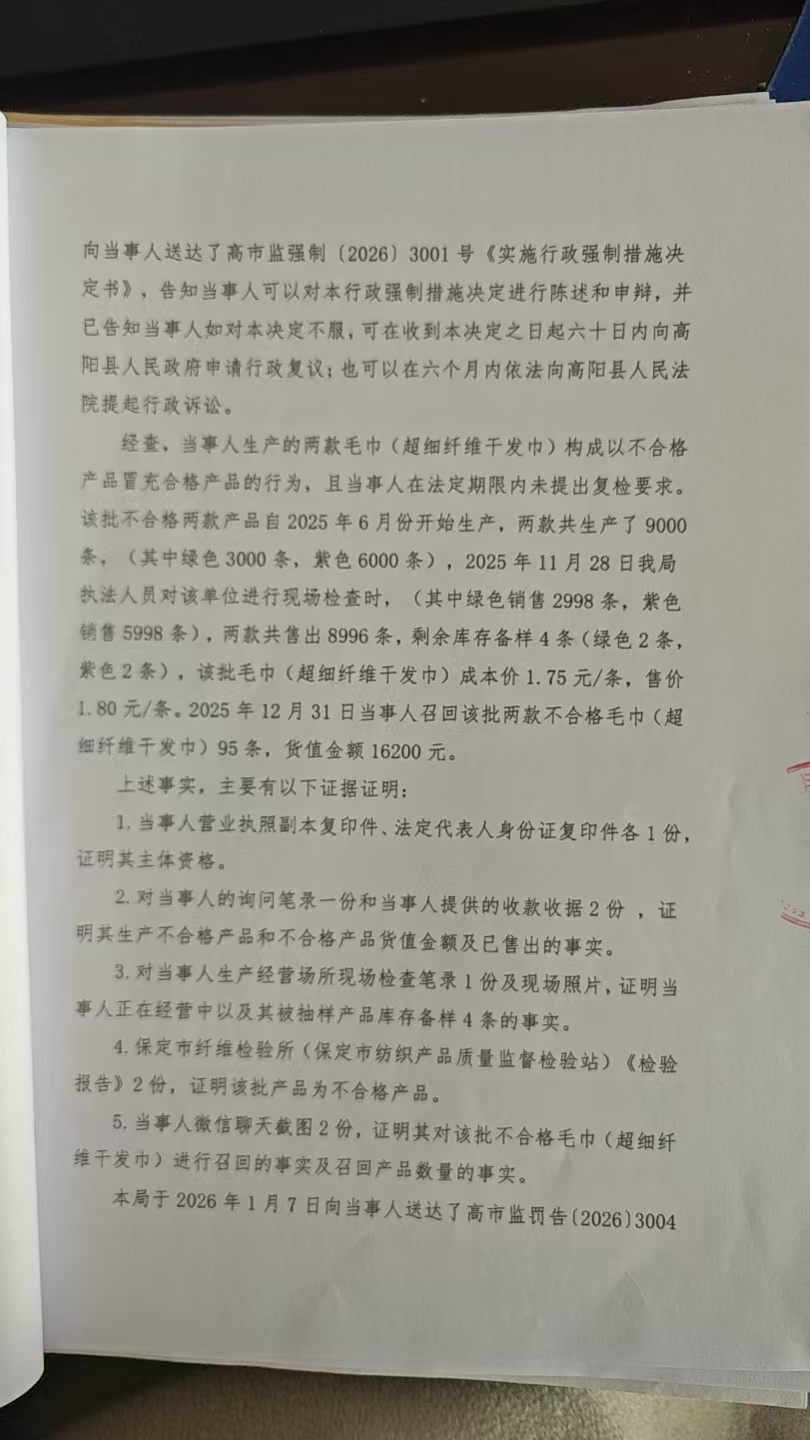 向当事人送达了高市监强制〔2026〕3001号《实施行政强制措施决
定书》，告知当事人可以对本行政强制措施决定进行陈述和申辩，并
已告知当事人如对本决定不服，可在收到本决定之日起六十日内向高
阳县人民政府申请行政复议；也可以在六个月内依法向高阳县人民法
院提起行政诉讼。
经查、当事人生产的两款毛巾（超细纤维干发巾）构成以不合格
产品冒充合格产品的行为，且当事人在法定期限内未提出复检要求。
该批不合格两款产品自2025年6月份开始生产，两款共生产了9000
条，（其中绿色3000条，紫色6000条），2025年11月28日我局
执法人员对该单位进行现场检查时，（其中绿色销售2998条，紫色
销售5998条），两款共售出8996条，剩余库存备样4条（绿色2条，
紫色2条），该批毛巾（超细纤维干发巾）成本价1.75元/条，售价
1.80元/条。2025年12月31日当事人召回该批两款不合格毛巾（超
细纤维干发巾）95条，货值金额16200元。
上述事实，主要有以下证据证明：
1.当事人营业执照副本复印件、法定代表人身份证复印件各1份，
证明其主体资格。
2.对当事人的询问笔录一份和当事人提供的收款收据2份 ，证
明其生产不合格产品和不合格产品货值金额及已售出的事实。
3.对当事人生产经营场所现场检查笔录1份及现场照片，证明当
事人正在经营中以及其被抽样产品库存备样4条的事实。
4.保定市纤维检验所（保定市纺织产品质量监督检验站）《检验
报告》2份，证明该批产品为不合格产品。
5.当事人微信聊天截图2份，证明其对该批不合格毛巾（超细纤
维干发巾）进行召回的事实及召回产品数量的事实。
本局于2026年1月7日向当事人送达了高市监罚告〔2026〕3004